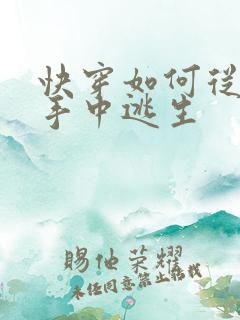 快穿如何従
手中逃生
赐他荣耀
未经同意禁止转载